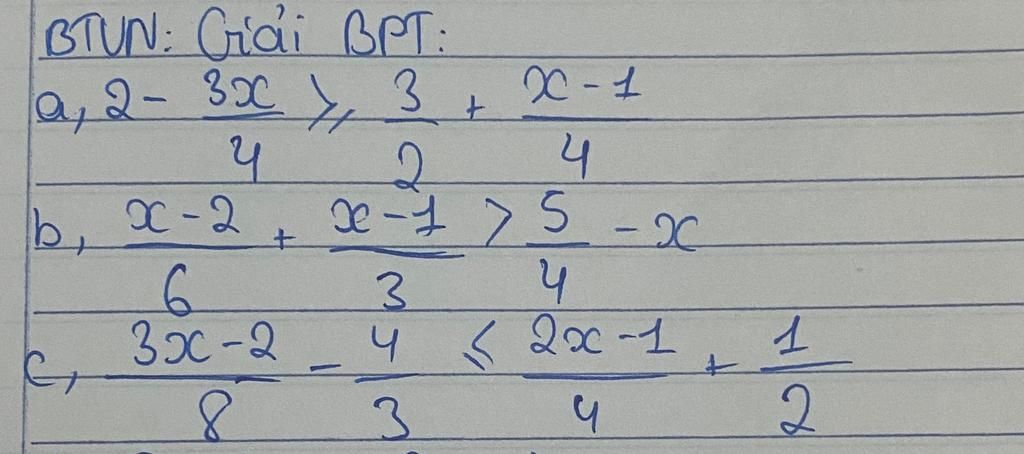 BTVN: Giải BPT:
a, 2 - 3x/4 ≥ 3/2 + x-1/4
b, x-2/6 + x-1/3 > 5/4 - x
c, 3x-2/8 - 4/3 ≤ 2x-1/4 + 1/2